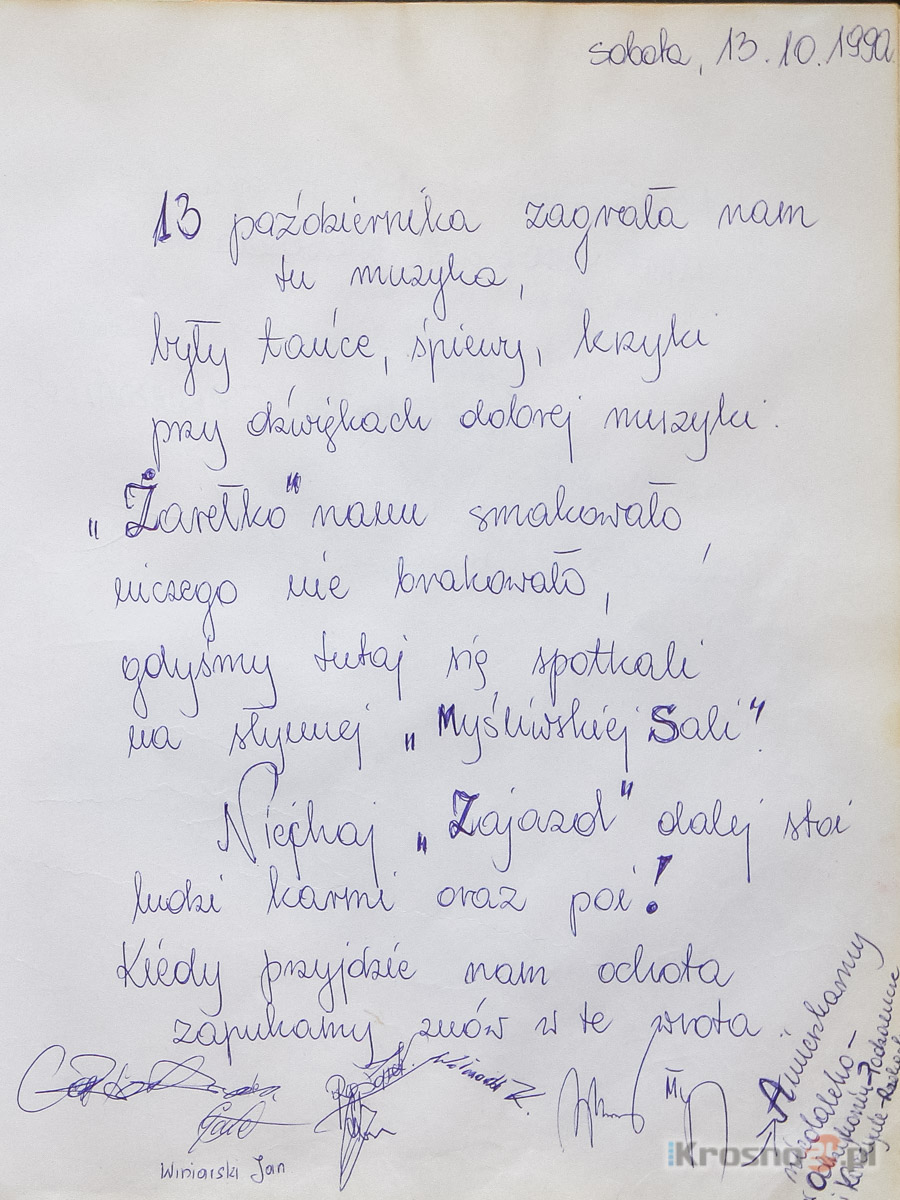 sobota, 13.10.1990
13 października zagrała nam
tu muzyka,
były tańce, śpiewy, krzyki
przy dźwiękach dobrej muzyki.
„Żarełko" nam smakowało,
niczego nie brakowało,
gdyśmy tutaj się spotkali
na słynnej „Myśliwskiej Sali".
Niechaj „Zajazd" dalej stoi
ludzi karmi oraz poi!
Kiedy przyjdzie nam ochota
zapukamy znów w te wrota
My
Winiarski Jan
A mieszkamy
niedaleko -
iKrosno24.pl